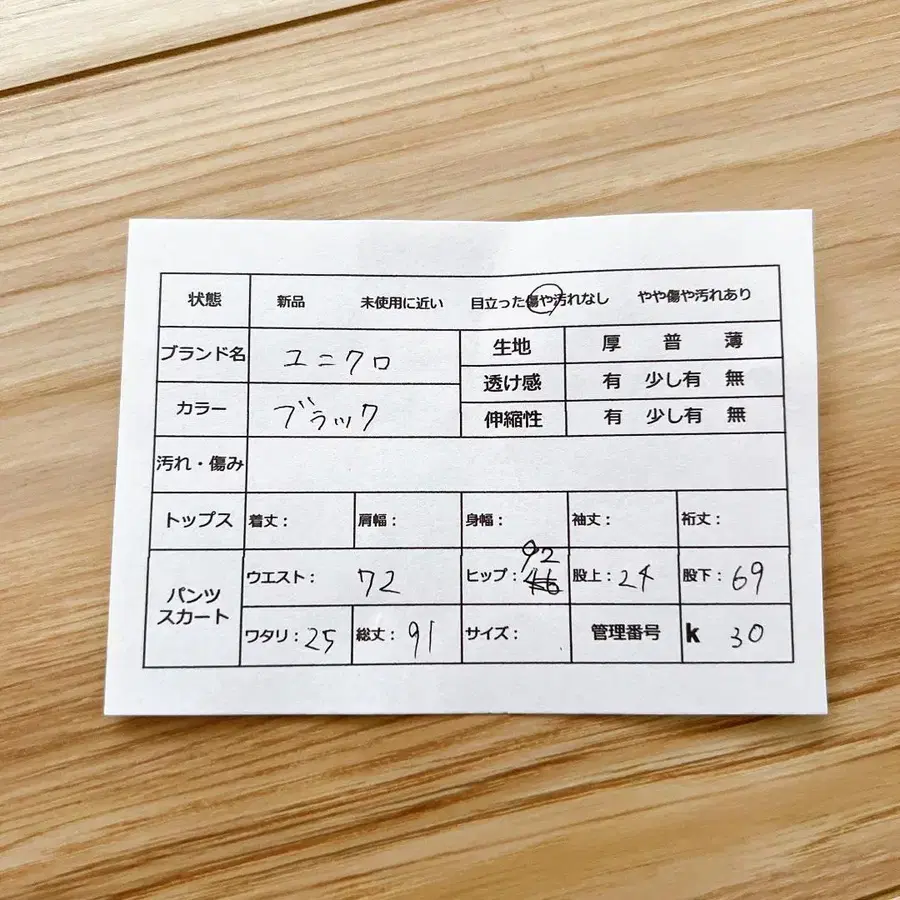 状態 新品 未使用に近い 目立った傷や汚れなし やや傷や汚れあり
ブランド名 ユニクロ 生地 厚 普 薄
透け感 有 少し有 無
カラー ブラック 伸縮性 有 少し有 無
汚れ・傷み
トップス 着丈: 肩幅: 身幅: 袖丈: 裄丈:
パンツ スカート ウエスト: 72 ヒップ: 46 92 股上: 24 股下: 69
ワタリ: 25 総丈: 91 サイズ: 管理番号 k 30